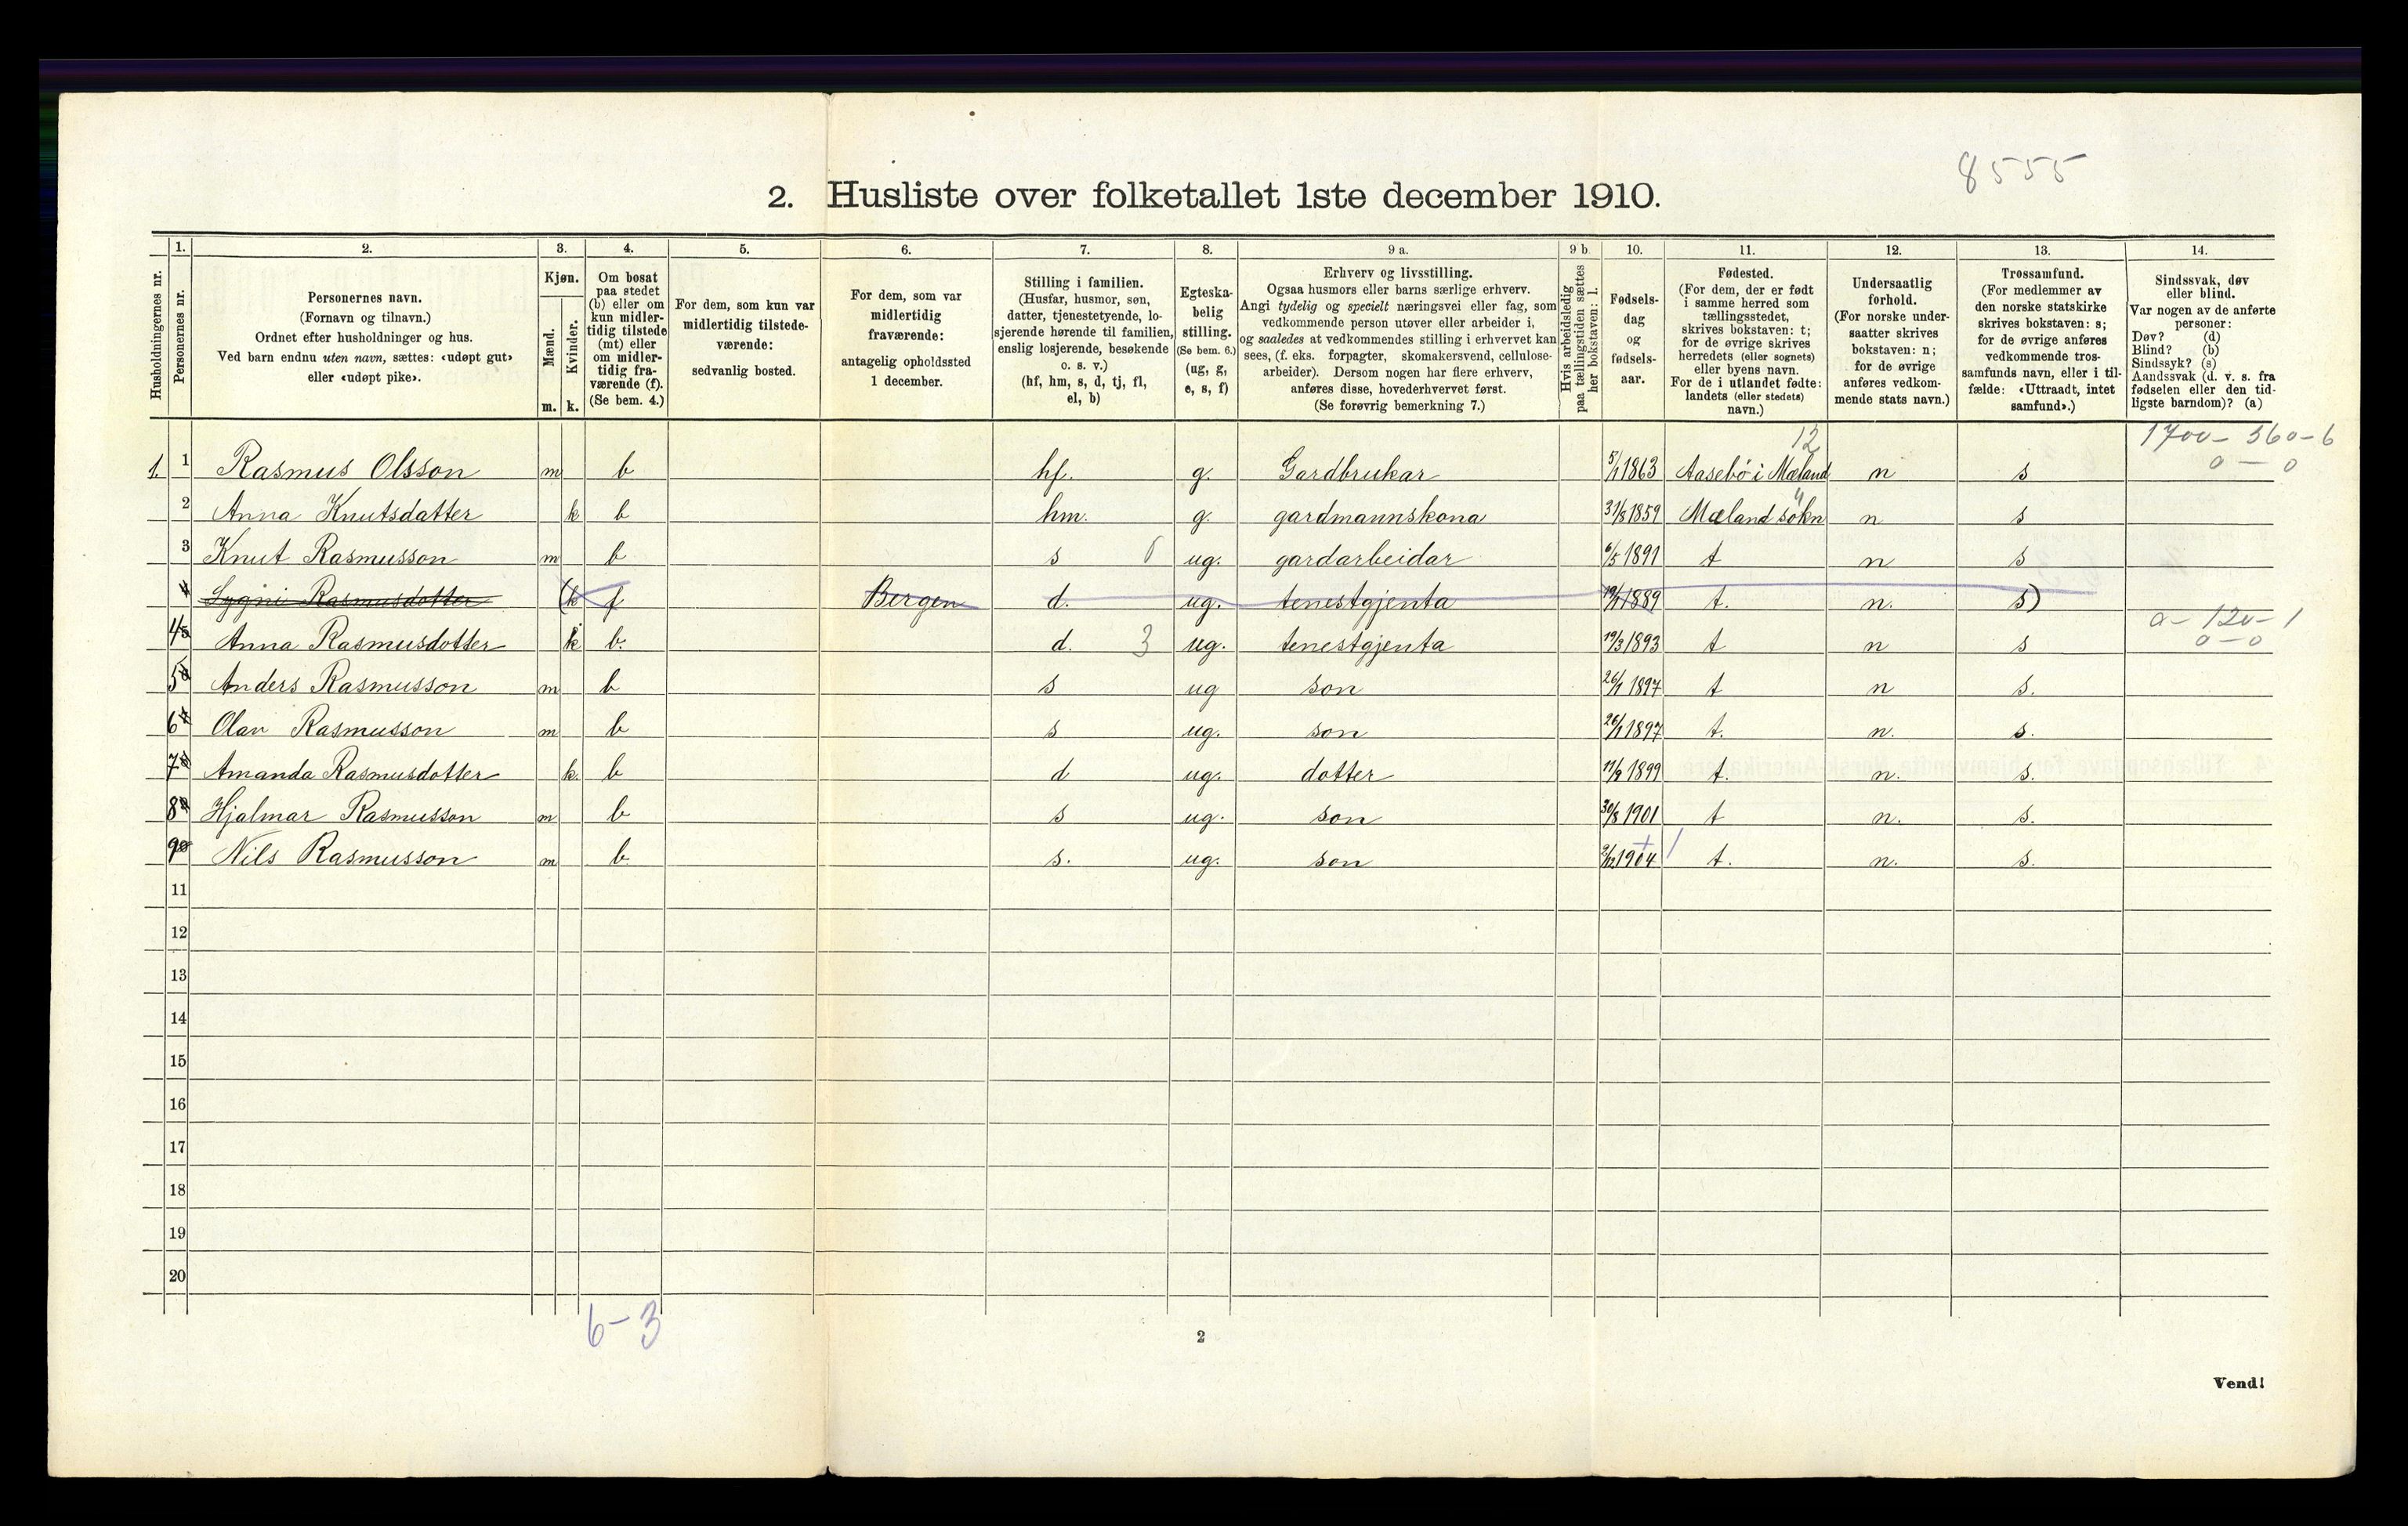 8555
2. Husliste over folketallet 1ste december 1910.
1. 2. 3. 4. 5. 6. 7. 8. 9 a. 9 b. 10. 11. 12. 13. 14.
Husholdningernes nr.
Personernes nr.
Personernes navn.
(Fornavn og tilnavn.)
Ordnet efter husholdninger og hus.
Ved barn endnu uten navn, sættes: «udøpt gut»
eller «udøpt pike».
Kjøn.
Mænd.
Kvinder.
m. k.
Om bosat
paa stedet
(b) eller om
kun midler-
tidig tilstede
(mt) eller
om midler-
tidig fra-
værende (f).
(Se bem. 4.)
For dem, som kun var
midlertidig tilstede-
værende:
sedvanlig bosted.
For dem, som var
midlertidig
fraværende:
antagelig opholdssted
1 december.
Stilling i familien.
(Husfar, husmor, søn,
datter, tjenestetyende, lo-
sjerende hørende til familien,
enslig losjerende, besøkende
o. s. v.)
(hf, hm, s, d, tj, fl,
el, b)
Egteska-
belig
stilling.
(Se bem. 6.)
(ug, g,
e, s, f)
Erhverv og livsstilling.
Ogsaa husmors eller barns særlige erhverv.
Angi tydelig og specielt næringsvei eller fag, som
vedkommende person utøver eller arbeider i,
og saaledes at vedkommendes stilling i erhvervet kan
sees, (f. eks. forpagter, skomakersvend, cellulose-
arbeider). Dersom nogen har flere erhverv,
anføres disse, hovederhvervet først.
(Se forøvrig bemerkning 7.)
Hvis arbeidsledig
paa tællingstiden sættes
her bokstaven: l.
Fødsels-
dag
og
fødsels-
aar.
Fødested.
(For dem, der er født
i samme herred som
tællingsstedet,
skrives bokstaven: t;
for de øvrige skrives
herredets (eller sognets)
eller byens navn.
For de i utlandet fødte:
landets (eller stedets)
navn.)
Undersaatlig
forhold.
(For norske under-
saatter skrives
bokstaven: n;
for de øvrige
anføres vedkom-
mende stats navn.)
Trossamfund.
(For medlemmer av
den norske statskirke
skrives bokstaven: s;
for de øvrige anføres
vedkommende tros-
samfunds navn, eller i til-
fælde: «Uttraadt, intet
samfund».)
Sindssvak, døv
eller blind.
Var nogen av de anførte
personer:
Døv? (d)
Blind? (b)
Sindssyk? (s)
Aandssvak (d. v. s. fra
fødselen eller den tid-
ligste barndom)? (a)
12 1700 - 360 - 6
0 - 0
1. 1 Rasmus Olsson m b hf. g. Gardbrukar 5/1 1863 Aasebö i Mæland n s
2 Anna Knutsdatter k b hm. g. gardmannskona 31/8 1859 Mæland sökn n s
3 Knut Rasmusson m b s ug. gardarbeidar 6/5 1891 t n s
4 Sygni Rasmusdotter (k f Bergen d. ug. tenestgjenta 1889 t. n. s)
0 - 120 - 1
0 - 0
4 Anna Rasmusdotter k b. d. 3 ug. tenestgjenta 19/3 1893 t n s
5 Anders Rasmusson m b s ug son 26/1 1897 t n s.
6 Olav Rasmusson m b s ug. son 26/1 1897 t. n. s.
7 Amanda Rasmusdotter k. b d ug. dotter 11/9 1899 t. n. s.
8 Hjalmar Rasmusson m b s ug. son 30/8 1901 t n. s.
9 Nils Rasmusson m b s. ug. son 9/12 1904 t. n. s.
11
12
13
14
15
16
17
18
19
20
6 - 3
2
Vend!